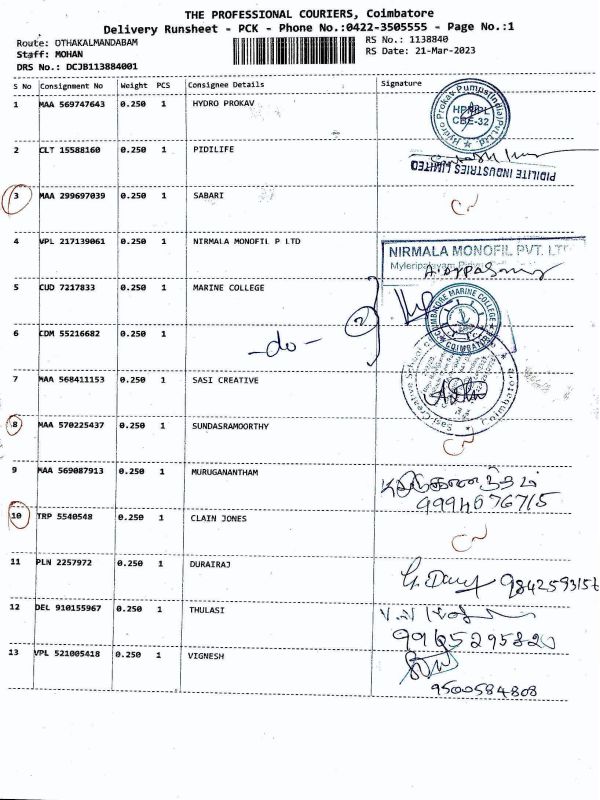 THE PROFESSIONAL COURIERS, Coimbatore
Delivery Runsheet - PCK - Phone No.:0422-3505555 - Page No.:1
Route: OTHAKALMANDABAM
RS No.: 1138840
Staff: MOHAN
RS Date: 21-Mar-2023
DRS No.: DCJB113884001
S No Consignment No Weight PCS Consignee Details Signature
1 MAA 569747643 0.250 1 HYDRO PROKAV
Hydro Prokav Pumps(India)Pvt.Ltd.
CBE-32
2 CLT 15588160 0.250 1 PIDILIFE
PIDILITE INDUSTRIES LIMITED
3 MAA 299697039 0.250 1 SABARI
4 VPL 217139061 0.250 1 NIRMALA MONOFIL P LTD
NIRMALA MONOFIL PVT. LTD
5 CUD 7217833 0.250 1 MARINE COLLEGE
2
COIMBATORE MARINE COLLEGE
COIMBATORE
6 CDM 55216682 0.250 1
-do-
7 MAA 568411153 0.250 1 SASI CREATIVE
8 MAA 570225437 0.250 1 SUNDASRAMOORTHY
9 MAA 569087913 0.250 1 MURUGANANTHAM
9994676715
10 TRP 5540548 0.250 1 CLAIN JONES
11 PLN 2257972 0.250 1 DURAIRAJ
9842593156
12 DEL 910155967 0.250 1 THULASI
9965295820
13 VPL 521005418 0.250 1 VIGNESH
9500584808